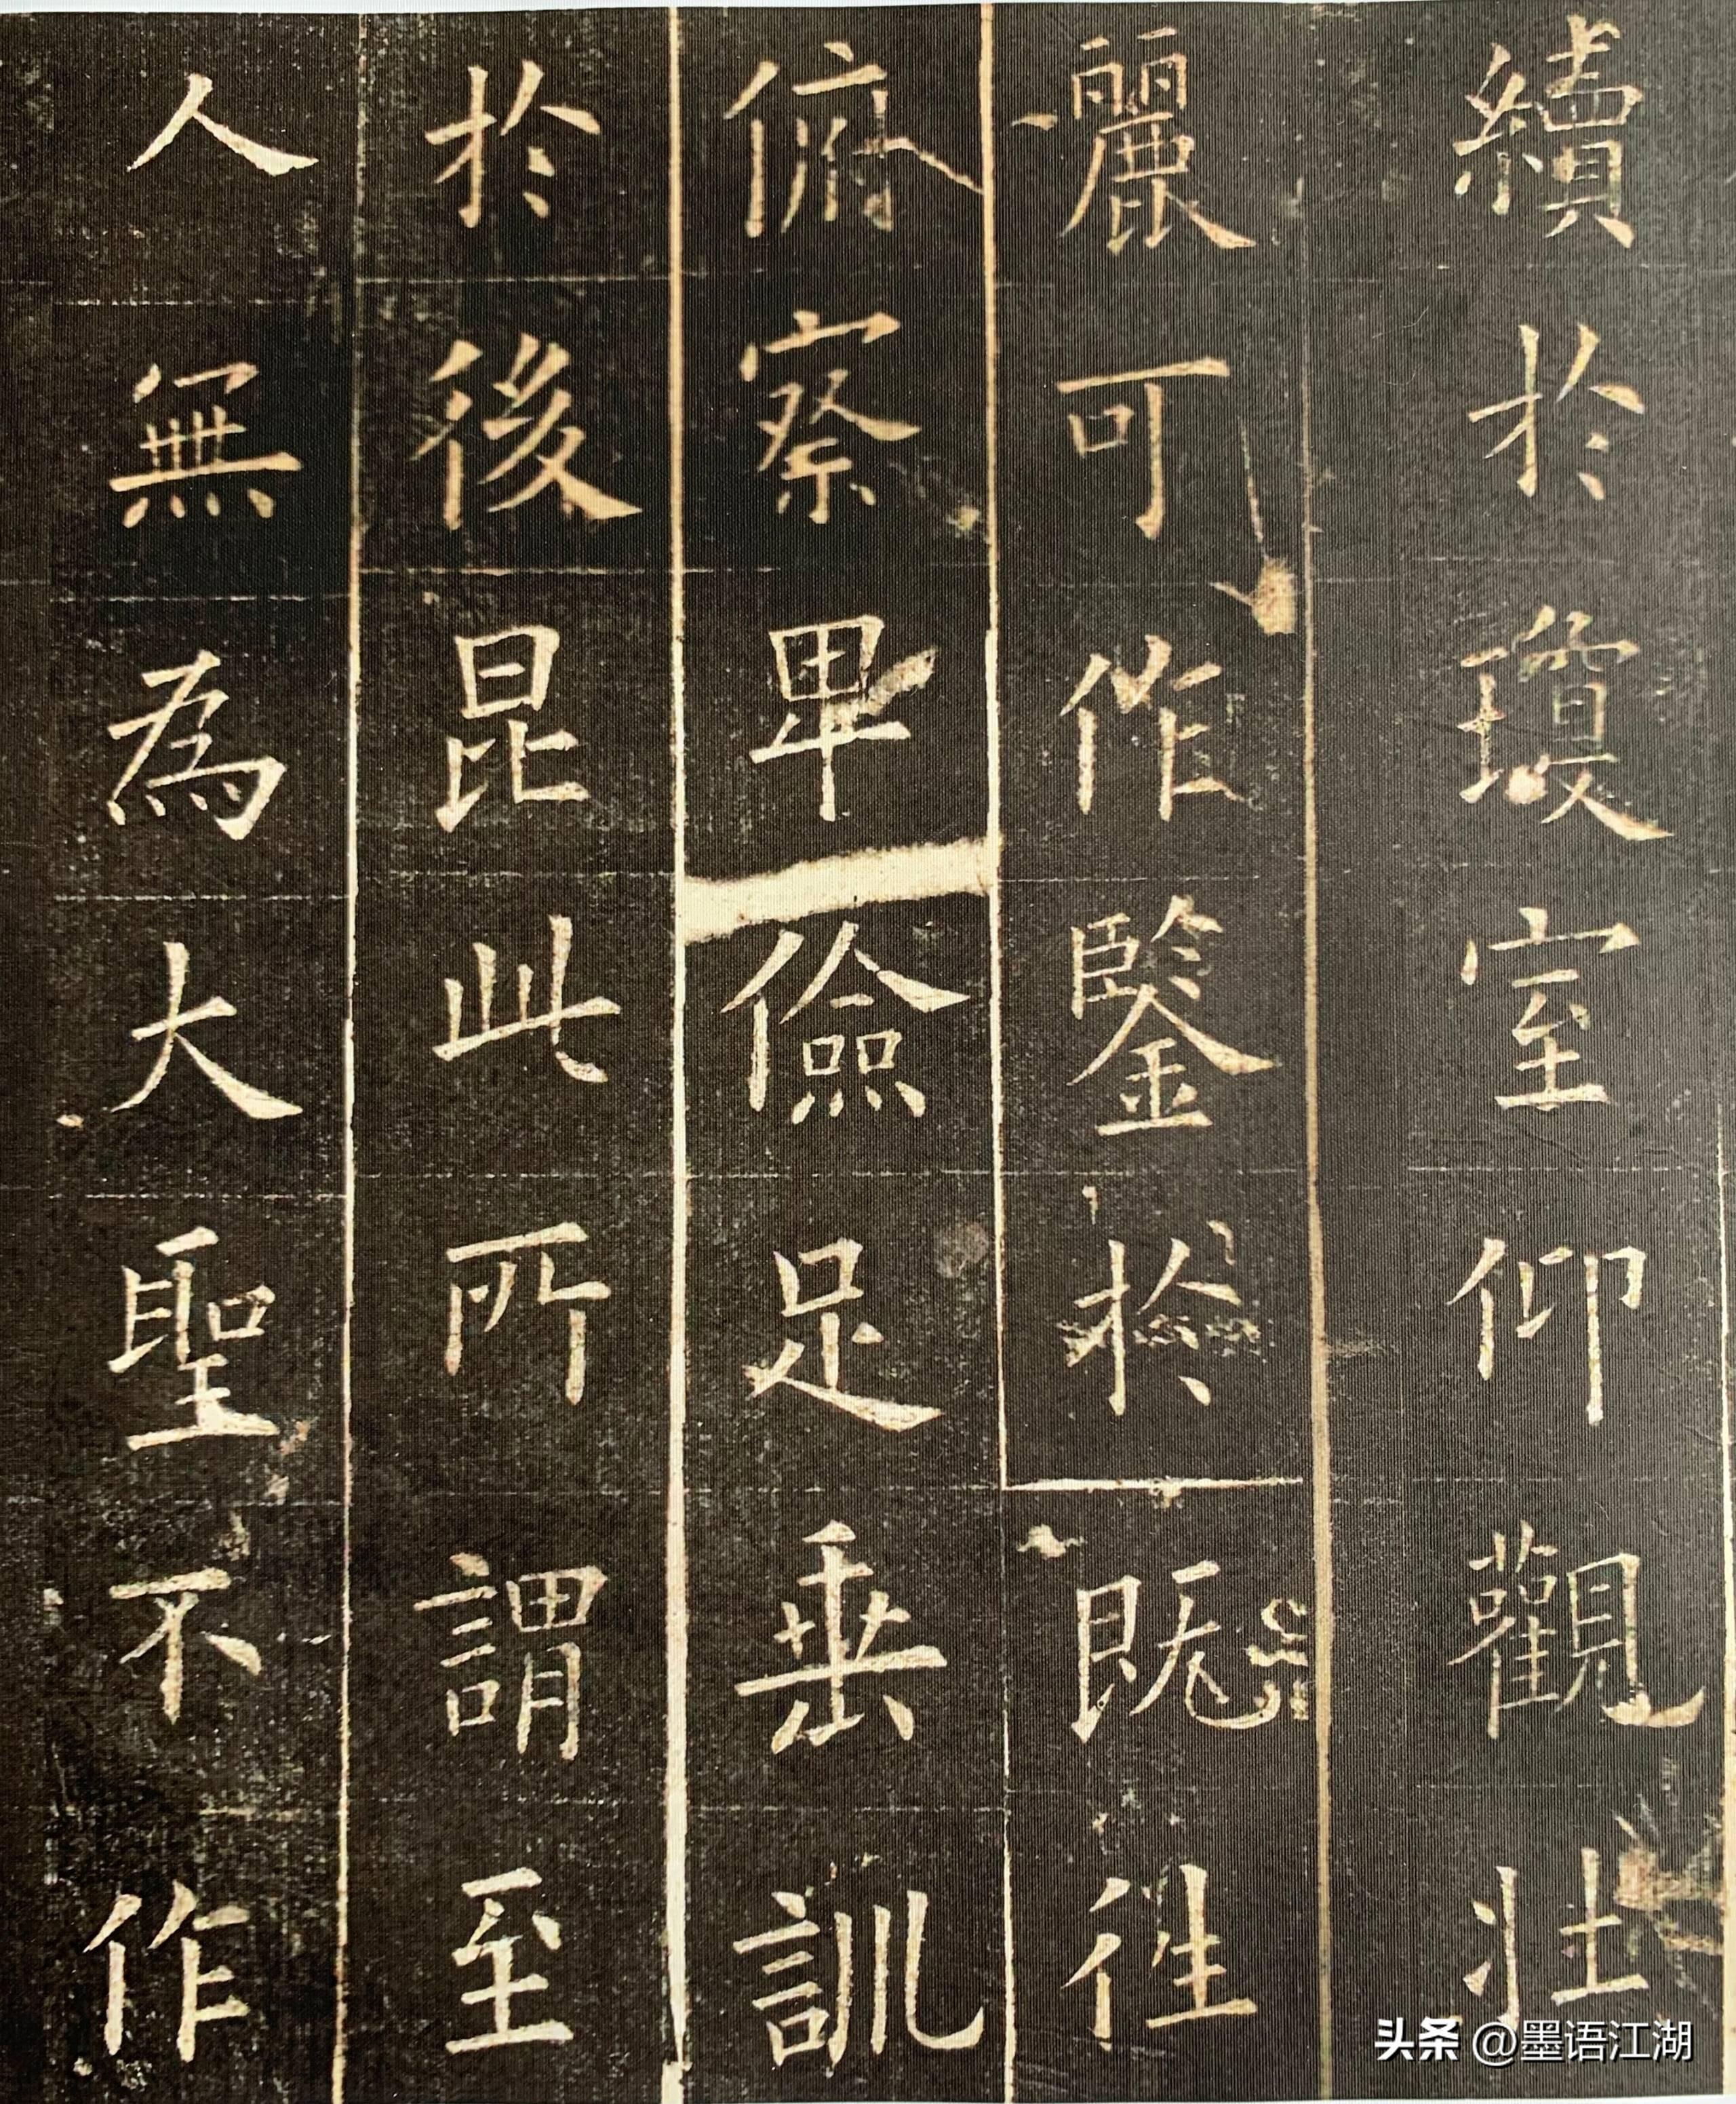 續於瓊室仰觀壯
麗可作鑒於既往
俯察卑儉足垂訓
於後昆此所謂至
人無為大聖不作
头条 @墨语江湖